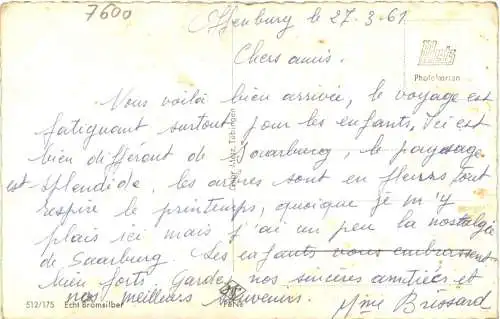 7600
Offenburg le 27-3-61
Chers amis.
Photokarton
Nous voilà bien arrivée, le voyage est
fatignant surtout pour les enfants. Ici est
bien différent de Saarburg, le paysage
est splendide, les arbres sont en fleurs tout
respire le printemps, quoique je m'y
plais ici mais j'ai un peu la nostalgie
de Saarburg. Les enfants vous embrassent
bien forts. Gardez nos sincères amitiées et
nos meilleurs souvenirs. Mme Brissard
512/175 Echt Bromsilber